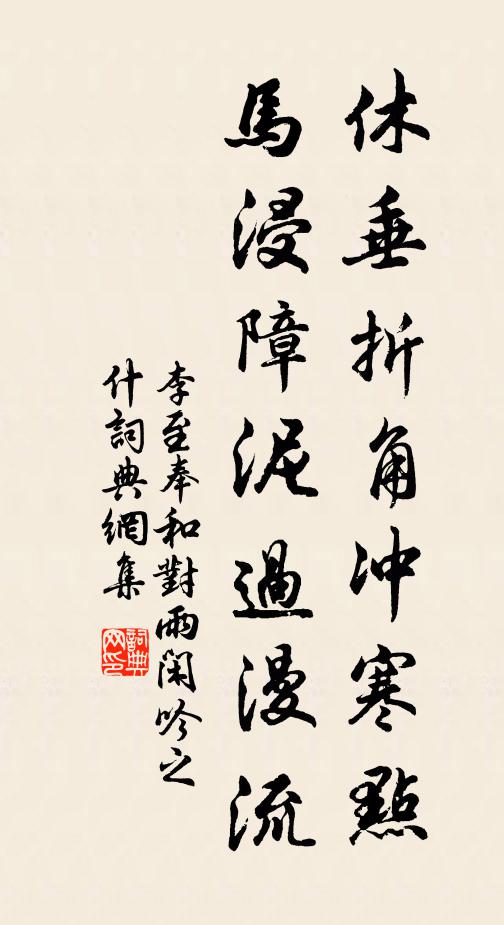 休垂折角冲寒點
馬浸障泥過漫流
李至奉和對雨閑吟之
什詞典網集
詞典网印